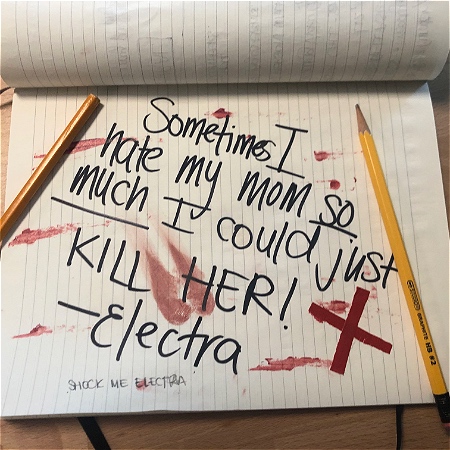 Sometimes I
hate my mom so
much I could just
KILL HER!
—Electra
SHOCK ME ELECTRA
HB #2